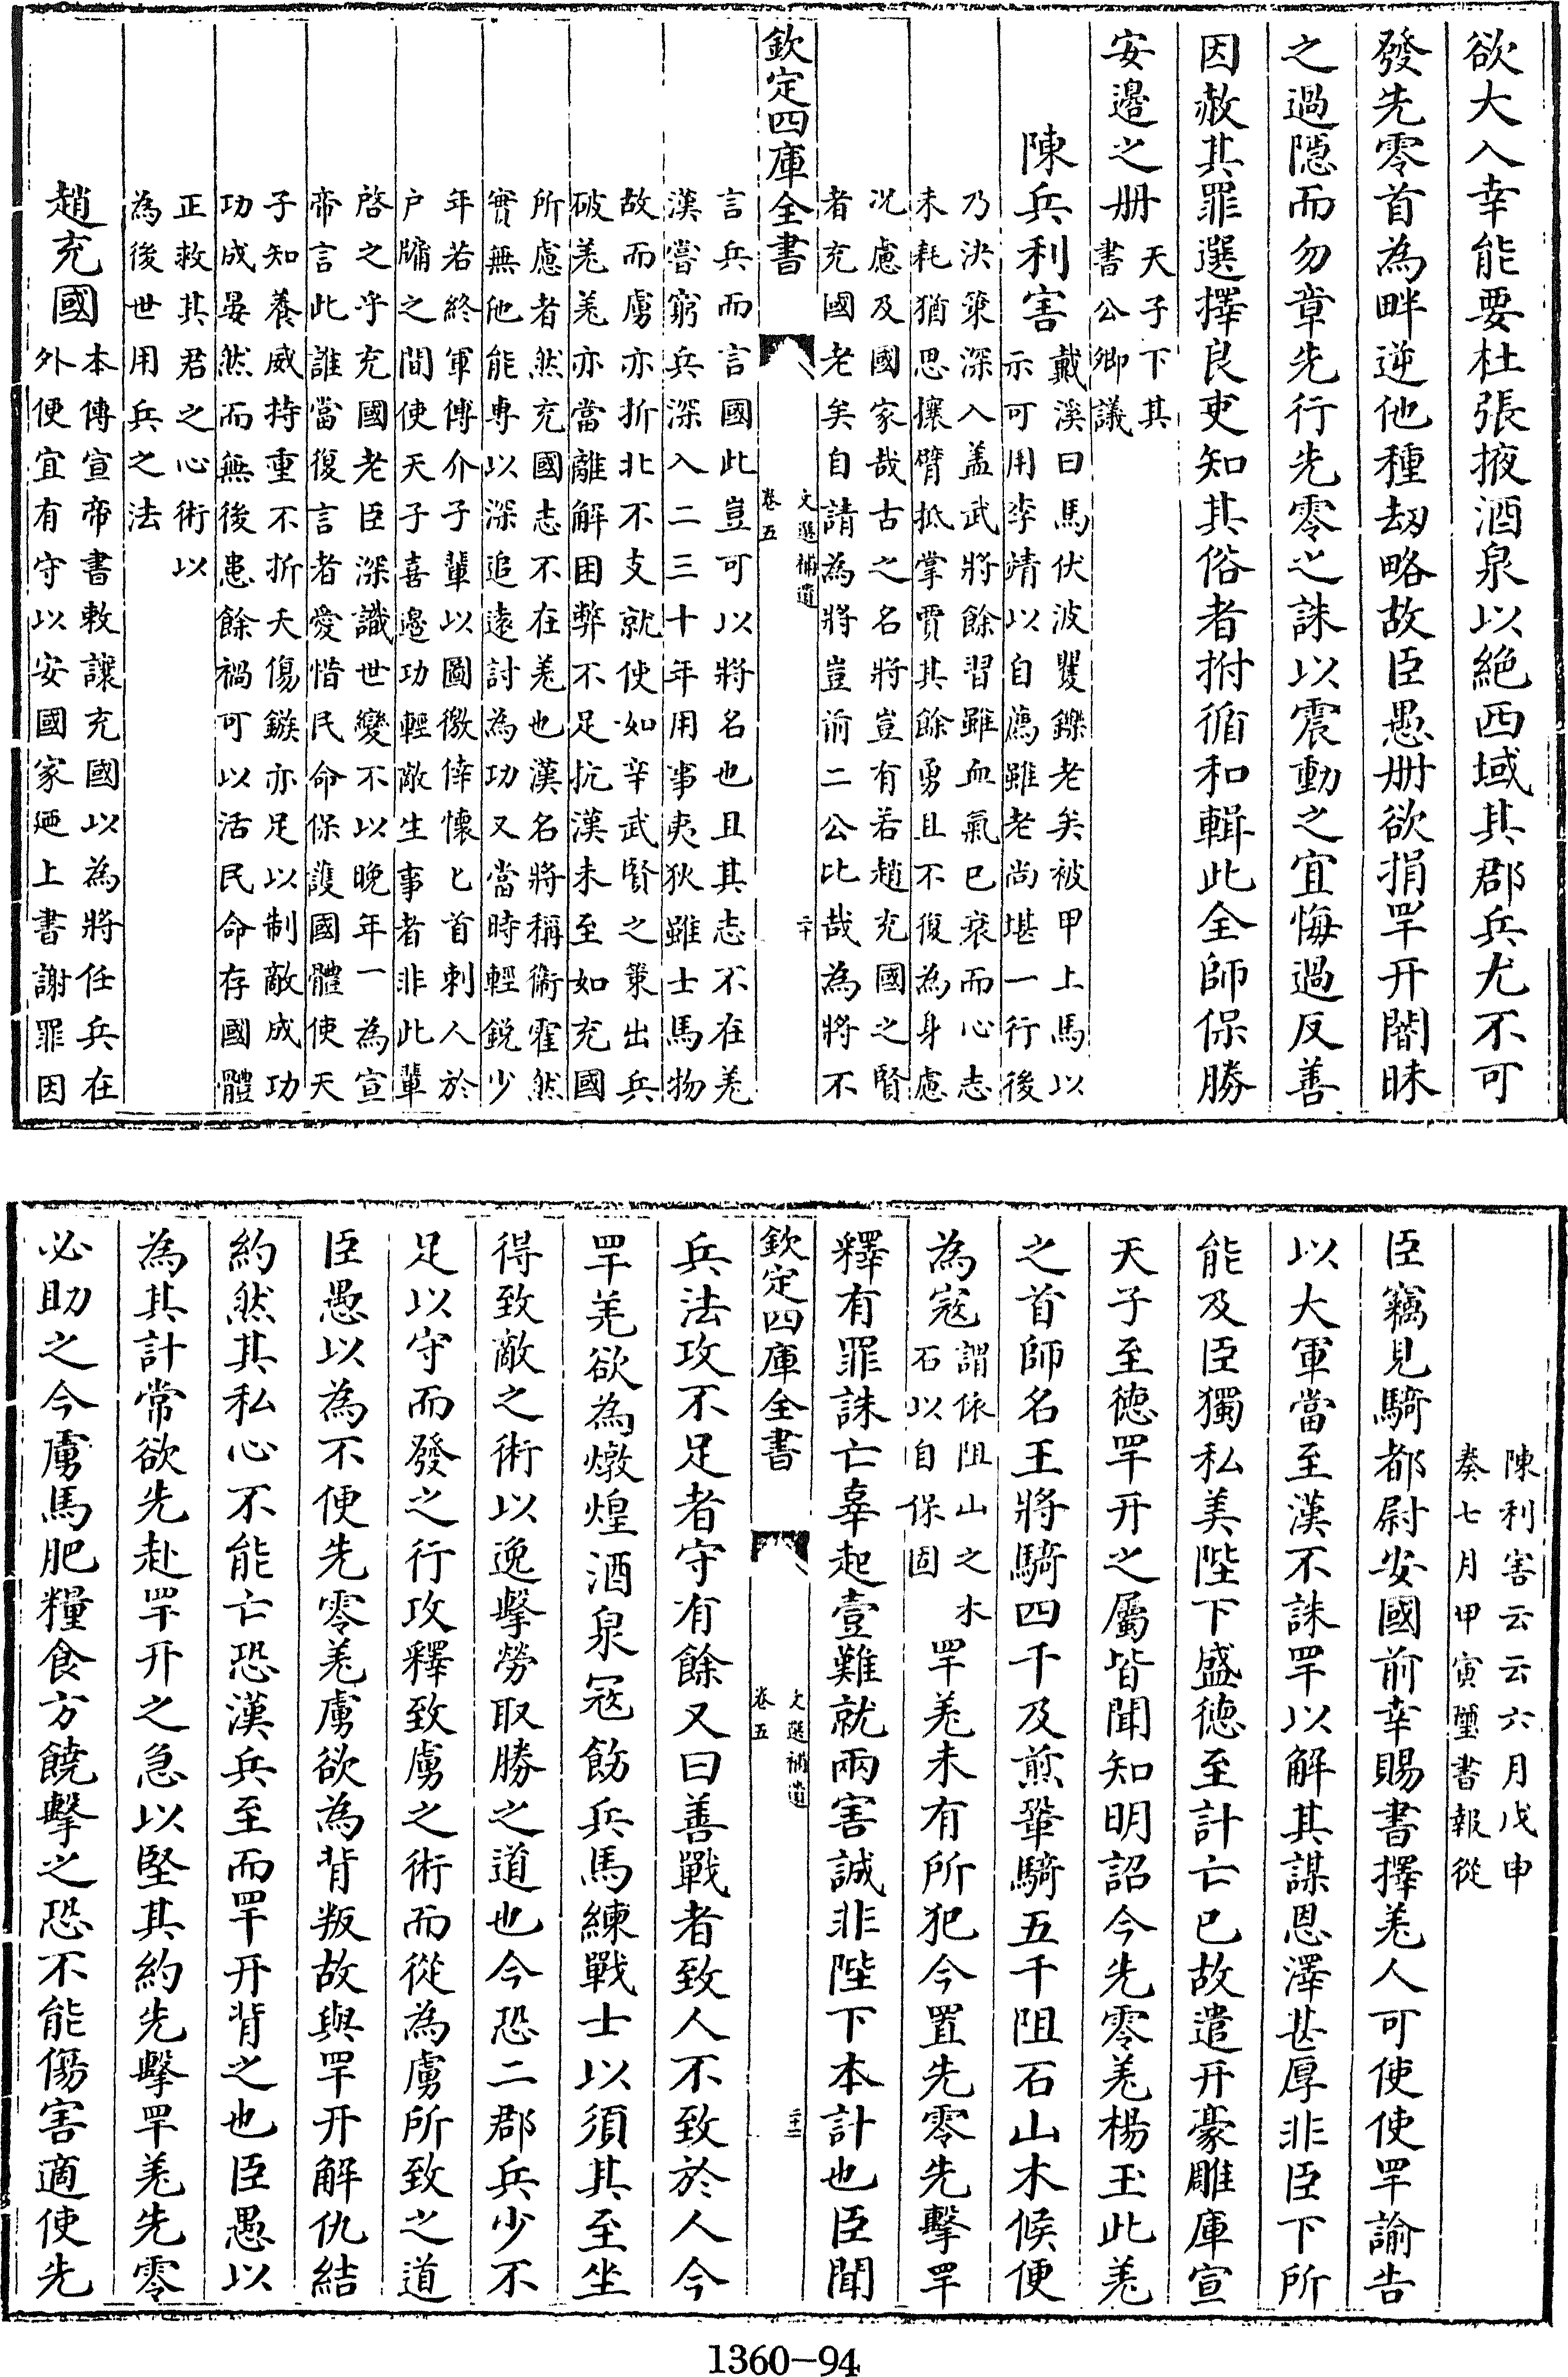 欲大入幸能要杜張掖酒泉以絕西域其郡兵尤不可
發先零首為畔逆他種刼略故臣愚册欲捐䍐开闇昧
之過隱而勿章先行先零之誅以震動之宜悔過反善
因赦其罪選擇良吏知其俗者拊循和輯此全師保勝
安邉之册天子下其
書公卿議
陳兵利害戴溪曰馬伏波矍鑠老矣被甲上馬以
示可用李靖以自薦雖老尚堪一行後
乃決策深入盖武將餘習雖血氣已衰而心志
未耗猶思攘臂抵掌賈其餘勇且不復為身慮
况慮及國家哉古之名將豈有若趙充國之賢
者充國老矣自請為將豈前二公比哉為將不
欽定四庫全書
文選補遺
卷五
二十
言兵而言國此豈可以將名也且其志不在羌
漢嘗窮兵深入二三十年用事夷狄雖士馬物
故而虜亦折北不支就使如辛武賢之策出兵
破羌羌亦當離解困弊不足抗漢未至如充國
所慮者然充國志不在羌也漢名將稱衞霍然
實無他能専以深追遠討為功又當時輕鋭少
年若終軍傅介子輩以圖徼倖懷匕首刺人於
户牖之間使天子喜邉功輕敵生事者非此輩
啓之乎充國老臣深識世變不以晚年一為宣
帝言此誰當復言者愛惜民命保護國體使天
子知養威持重不折夭傷鏃亦足以制敵成功
功成晏然而無後患餘禍可以活民命存國體
正救其君之心術以
為後世用兵之法
趙充國本傳宣帝書敕讓充國以為將任兵在
外便宜有守以安國家廼上書謝罪因
陳利害云云六月戊申
奏七月甲寅璽書報從
臣竊見騎都尉安國前幸賜書擇羌人可使使䍐諭告
以大軍當至漢不誅䍐以解其謀恩澤甚厚非臣下所
能及臣獨私美陛下盛徳至計亡已故遣开豪雕庫宣
天子至徳䍐开之屬皆聞知明詔今先零羌楊玉此羌
之首師名王將騎四千及煎鞏騎五千阻石山木候便
為寇謂依阻山之木
石以自保固䍐羌未有所犯今置先零先擊䍐
釋有罪誅亡辜起壹難就兩害誠非陛下本計也臣聞
欽定四庫全書
文選補遺
卷五
二十一
兵法攻不足者守有餘又曰善戰者致人不致於人今
䍐羌欲為燉煌酒泉寇飭兵馬練戰士以須其至坐
得致敵之術以逸擊勞取勝之道也今恐二郡兵少不
足以守而發之行攻釋致虜之術而從為虜所致之道
臣愚以為不便先零羌虜欲為背叛故與䍐开解仇結
約然其私心不能亡恐漢兵至而䍐开背之也臣愚以
為其計常欲先赴䍐开之急以堅其約先擊䍐羌先零
必助之今虜馬肥糧食方饒擊之恐不能傷害適使先
1360—94